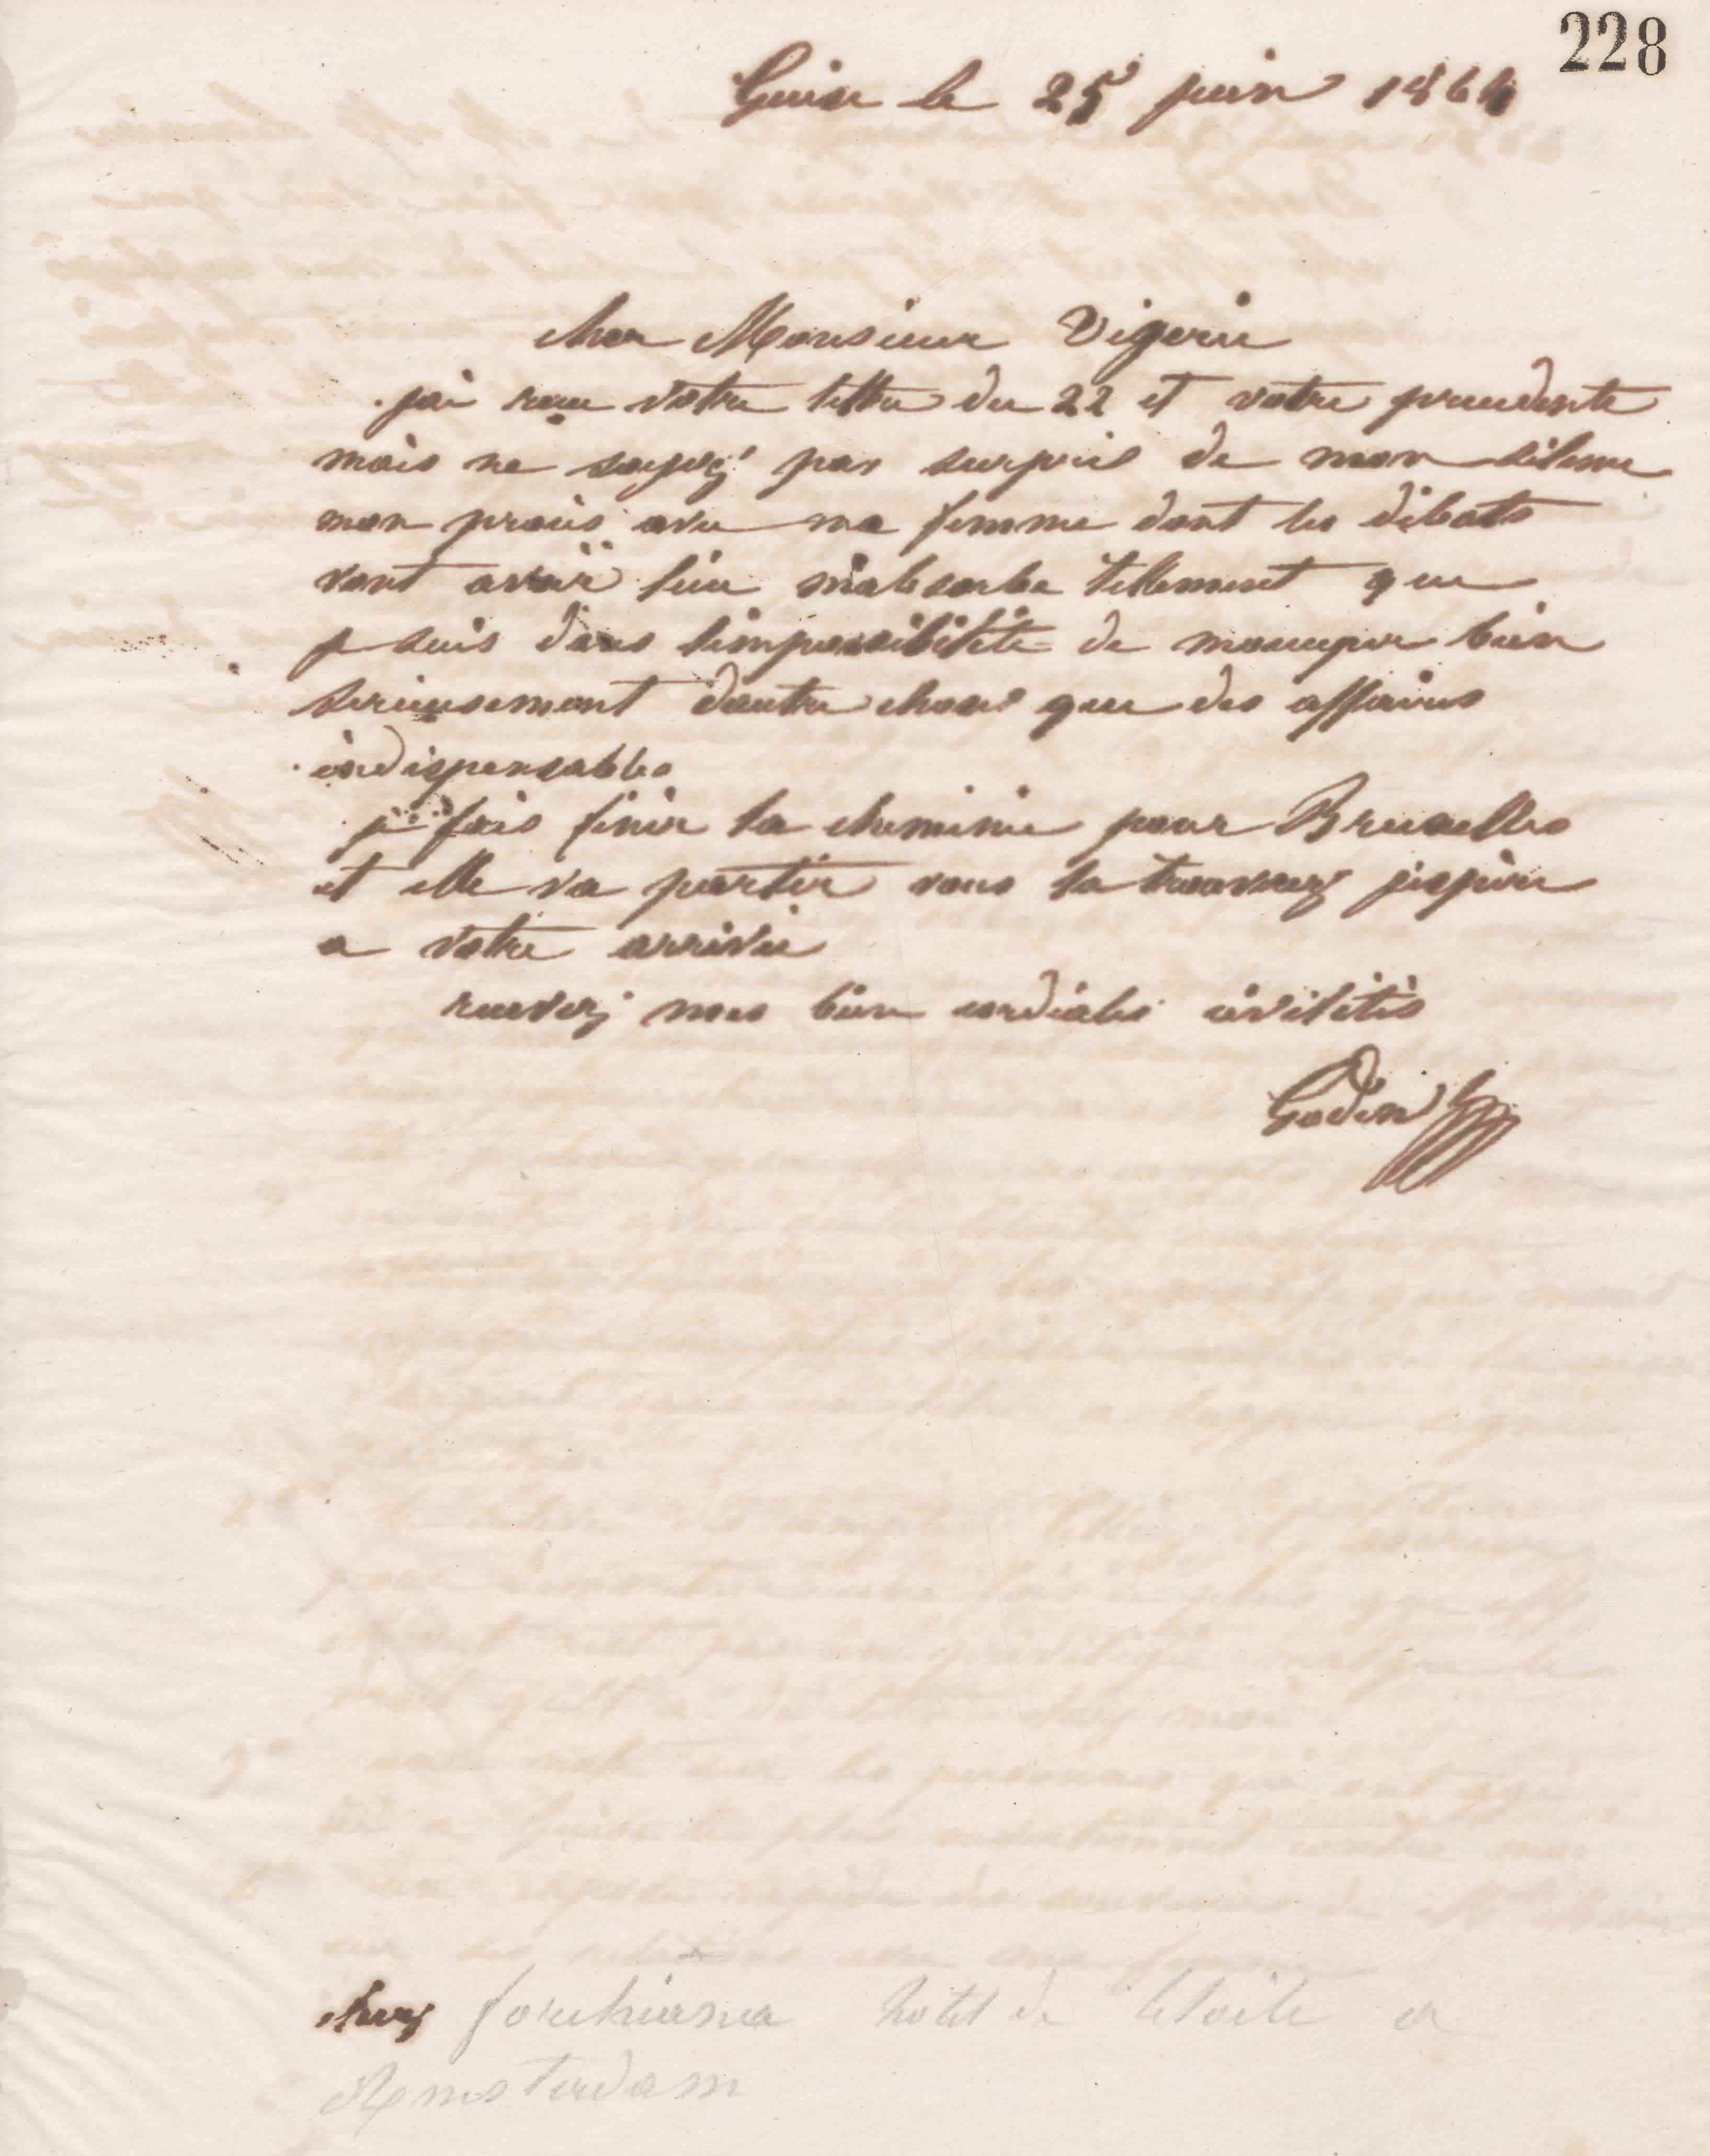 228
Guise le 25 juin 1864
cher Monsieur Vigerie
j'ai recu votre lettre du 22 et votre precedente
mais ne soyez pas surpris de mon silence
mon procès avec ma femme dont les débats
vont avoir lieu m'absorbe tellement que
je suis dans l'impossibilité de m'occuper bien
serieusement d'autre chose que des affaires
indispensables
je fais finir la cheminée pour Bruxelles
et elle va partir vous la trouverez j'espère
a votre arrivée
recevez mes bien cordiales civilités
Godin
chez hotel de letoile a
Amsterdam